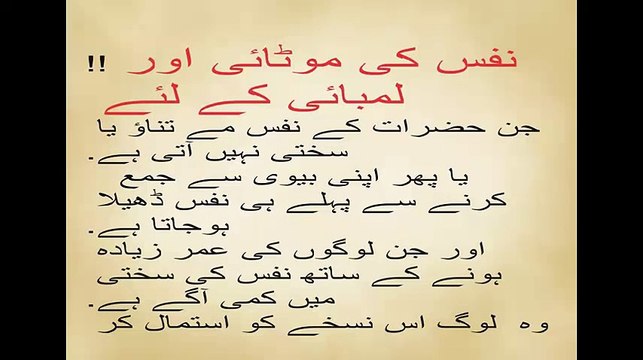 نفس کی موٹائی اور !!
لمبائی کے لئے
جن حضرات کے نفس مے تناؤ یا
سختی نہیں آتی ہے۔
یا پھر اپنی بیوی سے جمع
کرنے سے پہلے ہی نفس ڈھیلا
ہوجاتا ہے۔
اور جن لوگوں کی عمر زیادہ
ہونے کے ساتھ نفس کی سختی
میں کمی آگے ہے۔
وہ لوگ اس نسخے کو استمال کر